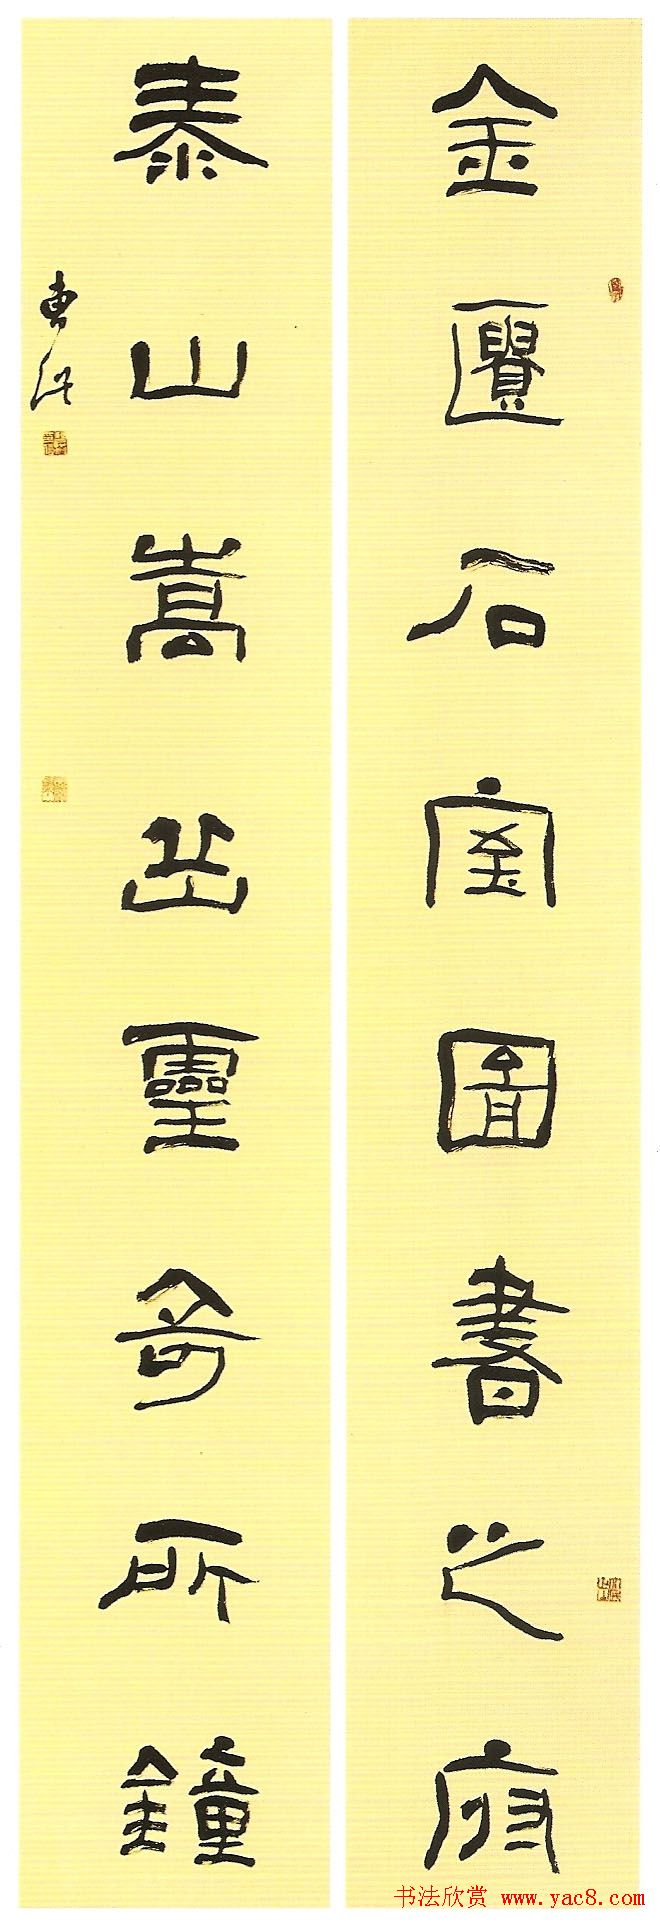 金匱石室圖書之府
泰山嵩岳靈奇所鐘
书法欣赏 www.yac8.com